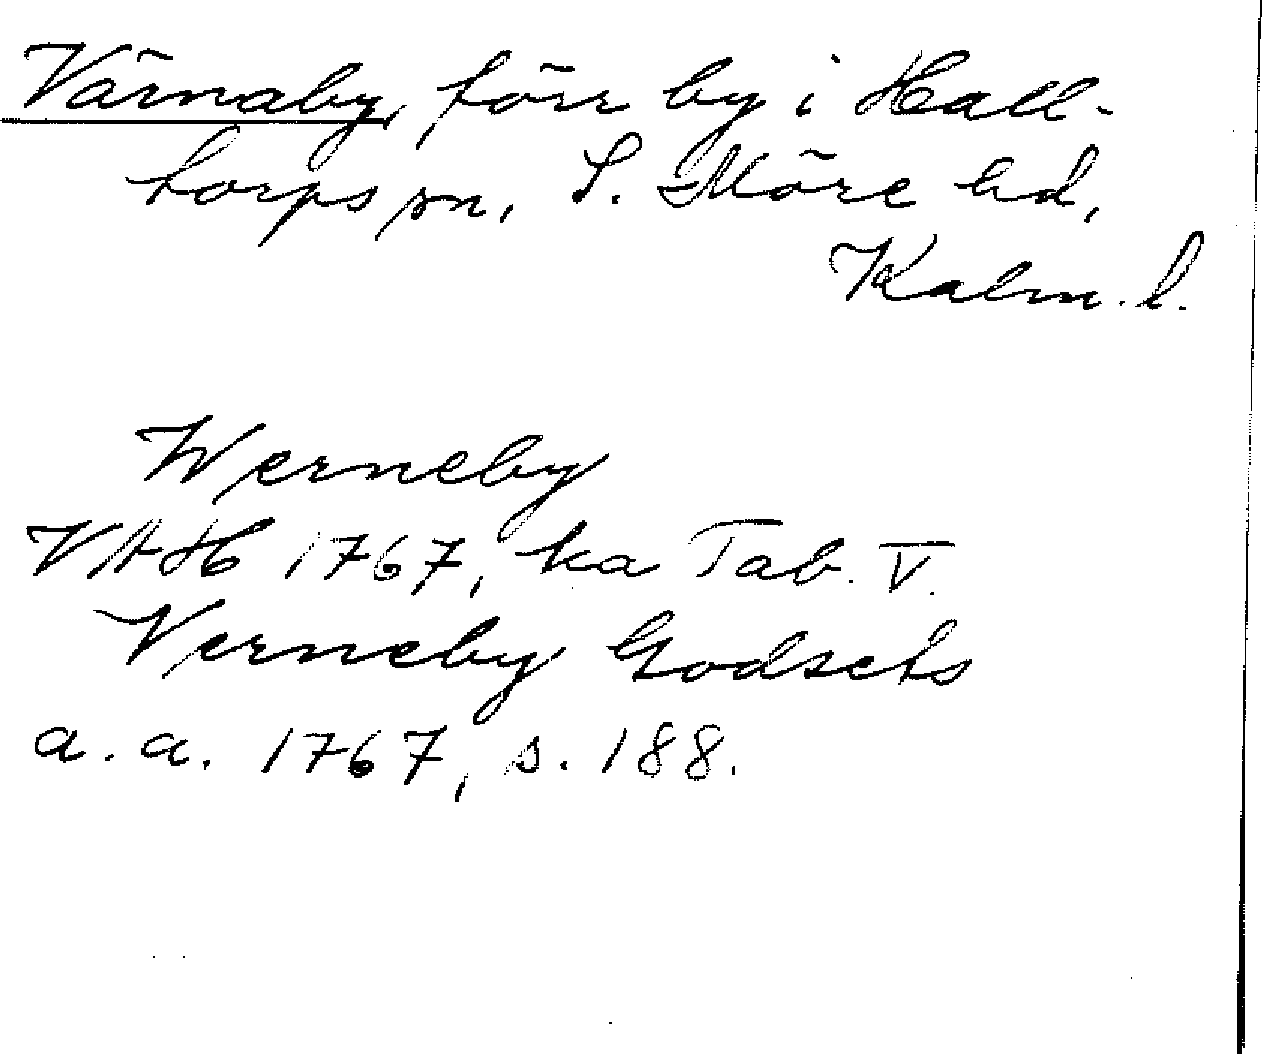 Värnaby, förr by i Hall-
torps sn, S. Möre hd,
Kalm. l.
Werneby
VAH 1767, ka Tab. V.
Verneby Godsets
a. a. 1767, s. 188.